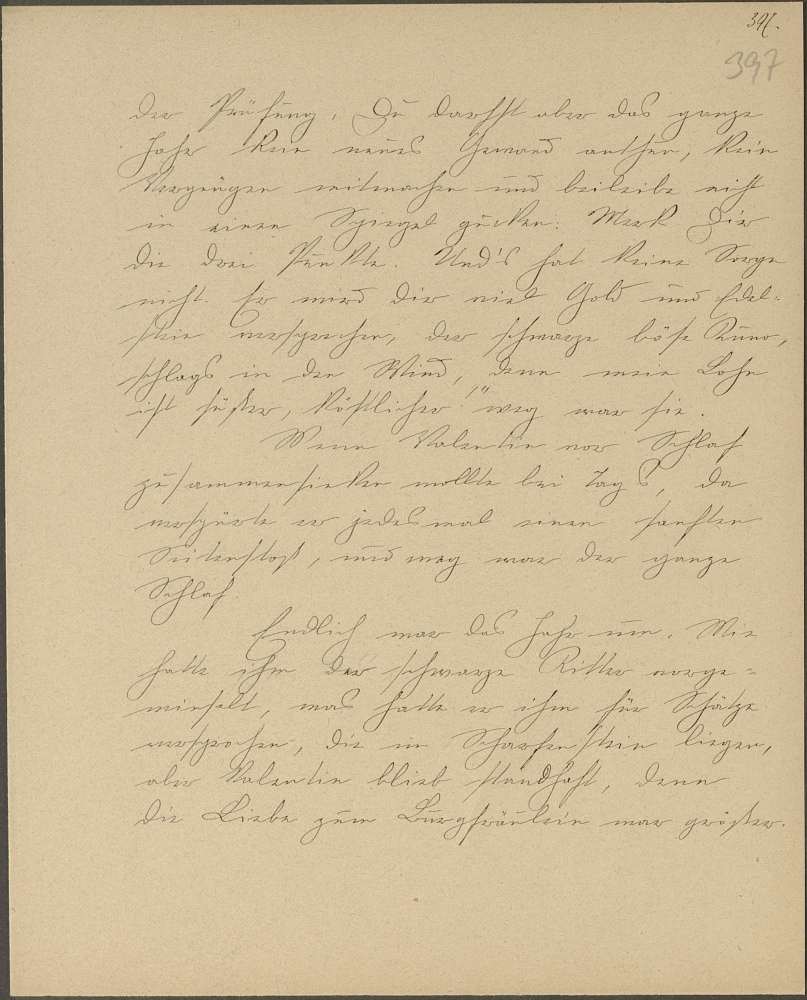 397.
397
der Prüfung. Du darfst aber das ganze
Jahr kein neues Gewand anthun, kein
Vergnügen mitmachen und beileibe nicht
in einen Spiegel gucken. Merk Dir
die drei Punkte. Und's hat keine Sorge
nicht. Er wird dir viel Gold und Edel-
stein versprechen, der schwarze böse Kuno,
schlags in den Wind, denn mein Lohn
ist süßer, köstlicher!" weg war sie.
Wenn Valentin vor Schlaf
zusammensinken wollte bei Tags, da
verspürte er jedesmal einen sanften
Seitenstoß, und weg war der ganze
Schlaf.
Endlich war das Jahr um. Wie
hatte ihm der schwarze Ritter vorge-
winselt, was hatte er ihm für Schätze
versprochen, die im Scharfenstein liegen,
aber Valentin blieb standhaft, denn
die Liebe zum Burgfräulein war größer.